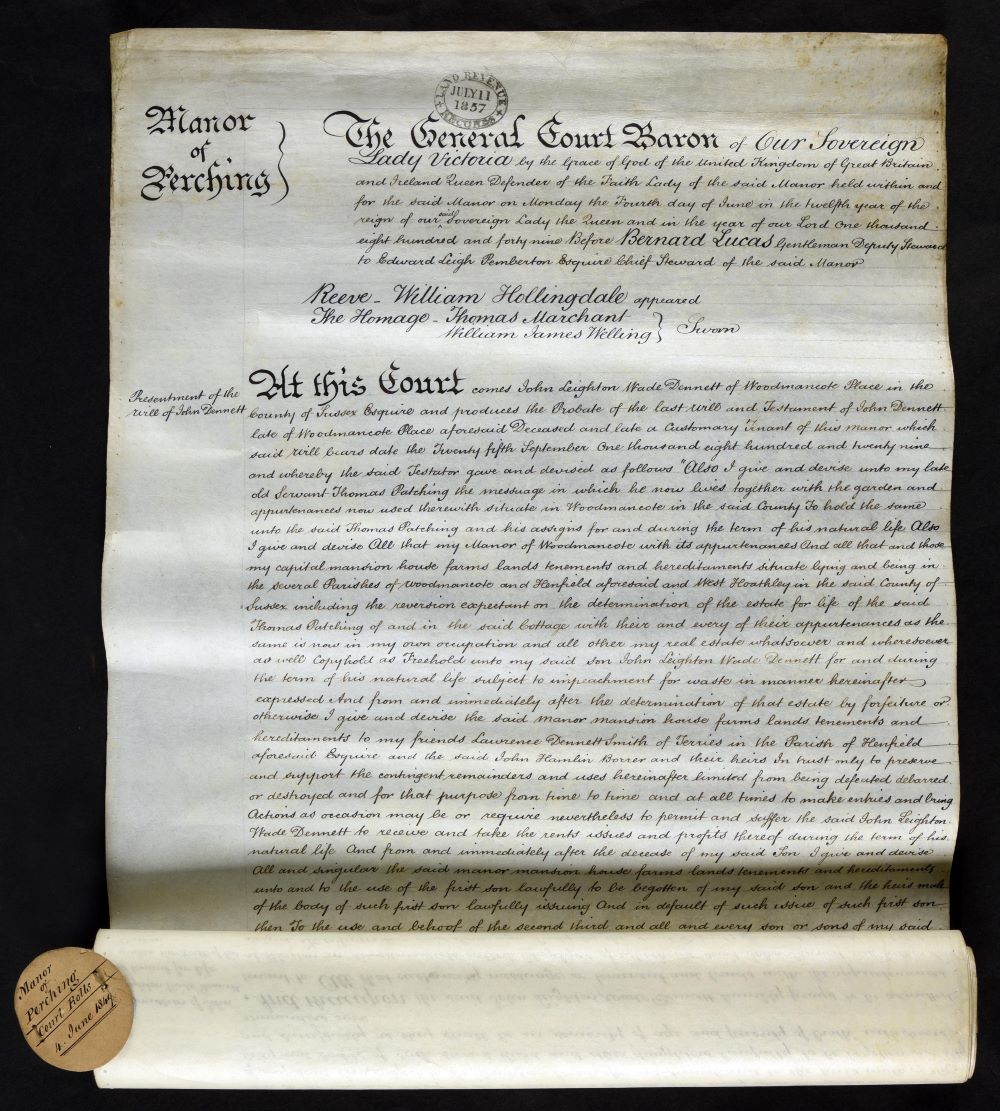 LAND REVENUE
JULY 11
1857
RECORDS
Manor
of
Perching
The General Court Baron of Our Sovereign
Lady Victoria by the Grace of God of the United Kingdom of Great Britain
and Ireland Queen Defender of the Faith Lady of the said Manor held within and
for the said Manor on Monday the Fourth day of June in the twelfth year of the
reign of our said Sovereign Lady the Queen and in the year of our Lord One thousand
eight hundred and forty nine Before Bernard Lucas Gentleman Deputy Steward
to Edward Leigh Pemberton Esquire Chief Steward of the said Manor
Reeve - William Hollingdale appeared
The Homage - Thomas Marchant
William James Welling } Sworn
Presentment of the
Will of John Dennett
At this Court comes John Leighton Wade Dennett of Woodmancote Place in the
County of Sussex Esquire and produces the Probate of the last Will and Testament of John Dennett
late of Woodmancote Place aforesaid Deceased and late a Customary Tenant of this manor which
said Will bears date the Twenty fifth September One thousand eight hundred and twenty nine
and whereby the said Testator gave and devised as follows "Also I give and devise unto my late
old Servant Thomas Patching the messuage in which he now lives together with the garden and
appurtenances now used therewith situate in Woodmancote in the said County To hold the same
unto the said Thomas Patching and his assigns for and during the term of his natural life Also
I give and devise All that my Manor of Woodmancote with its appurtenances And all that and those
my capital mansion house farms lands tenements and hereditaments situate lying and being in
the several Parishes of Woodmancote and Henfield aforesaid and West Hoathley in the said County of
Sussex including the reversion expectant on the determination of the estate for life of the said
Thomas Patching of and in the said Cottage with their and every of their appurtenances as the
same is now in my own occupation and all other my real estate whatsoever and wheresoever
as well Copyhold as Freehold unto my said son John Leighton Wade Dennett for and during
the term of his natural life subject to impeachment for waste in manner hereinafter
expressed And from and immediately after the determination of that estate by forfeiture or
otherwise I give and devise the said manor mansion house farms lands tenements and
hereditaments to my friends Lawrence Dennett Smith of Terries in the Parish of Henfield
aforesaid Esquire and the said John Hamlin Borrer and their heirs In trust only to preserve
and support the contingent remainders and uses hereinafter limited from being defeated debarred
or destroyed and for that purpose from time to time and at all times to make entries and bring
Actions as occasion may be or require nevertheless to permit and suffer the said John Leighton
Wade Dennett to receive and take the rents issues and profits thereof during the term of his
natural life And from and immediately after the decease of my said Son I give and devise
All and singular the said manor mansion house farms lands tenements and hereditaments
unto and to the use of the first son lawfully to be begotten of my said son and the heirs male
of the body of such first son lawfully issuing And in default of such issue of such first son
then To the use and behoof of the second third and all and every son or sons of my said
Manor
of
Perching
Court Rolls
4. June 1849